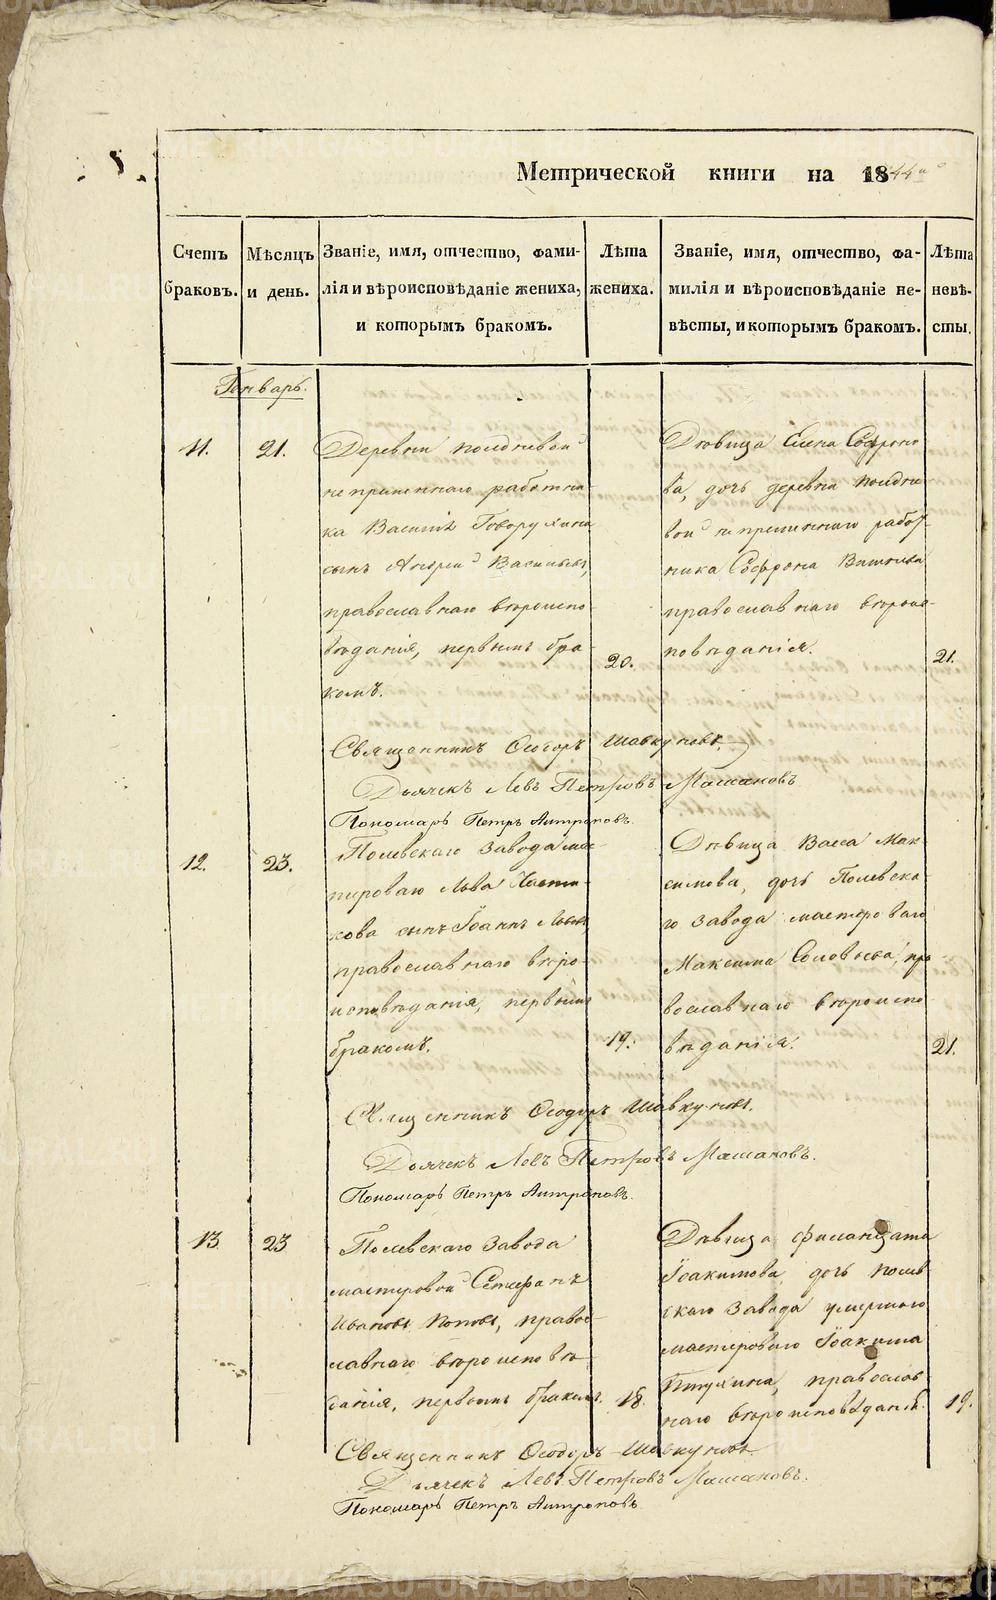 Метрической книги на 1844
Счетъ браковъ.
Мѣсяцъ и день.
Званіе, имя, отчество, фами-
лія и вѣроисповѣданіе жениха,
и которымъ бракомъ.
Лѣта
жениха.
Званіе, имя, отчество, фа-
милія и вѣроисповѣданіе не-
вѣсты, и которымъ бракомъ.
Лѣта
невѣ-
сты.
Генварь.
11.
21.
Деревни Полдневой
неприменнаго работни-
ка Василія Говорухина
сынъ Андрей Васильевъ,
православнаго вѣроиспо-
вѣданія, первымъ бра-
комъ.
20.
Дѣвица Елена Софроно-
ва, дочь деревни Полдне-
вой непременнаго работ-
ника Софрона
православнаго вѣроис-
повѣданія.
21.
Священникъ Ѳеодоръ Шавкуновъ.
Дьячекъ Левъ Петровъ Машановъ.
Пономарь Петръ Антроповъ.
12.
23.
Полевскаго Завода мас-
тероваго Льва
кова сынъ Іоаннъ Львовъ
православнаго вѣро-
исповѣданія, первымъ
бракомъ.
19.
Дѣвица Васса Мак-
симова, дочь Полевска-
го Завода мастероваго
Максима Соловьева, пра-
вославнаго вѣроиспо-
вѣданія.
21.
Священникъ Ѳеодоръ Шавкуновъ.
Дьячекъ Левъ Петровъ Машановъ.
Пономарь Петръ Антроповъ.
13.
23
Полевскаго Завода
мастеровой Стефанъ
Ивановъ Поповъ, правос-
лавнаго вѣроисповѣ-
данія, первымъ бракомъ.
18.
Дѣвица Филанцата
Іоакимова, дочь Полев-
скаго Завода умершаго
мастероваго Іоакима
православ-
наго вѣроисповѣданія.
19.
Священникъ Ѳеодоръ Шавкуновъ.
Дьячекъ Левъ Петровъ Машановъ.
Пономарь Петръ Антроповъ.
METRIKI.GASO-URAL.RU